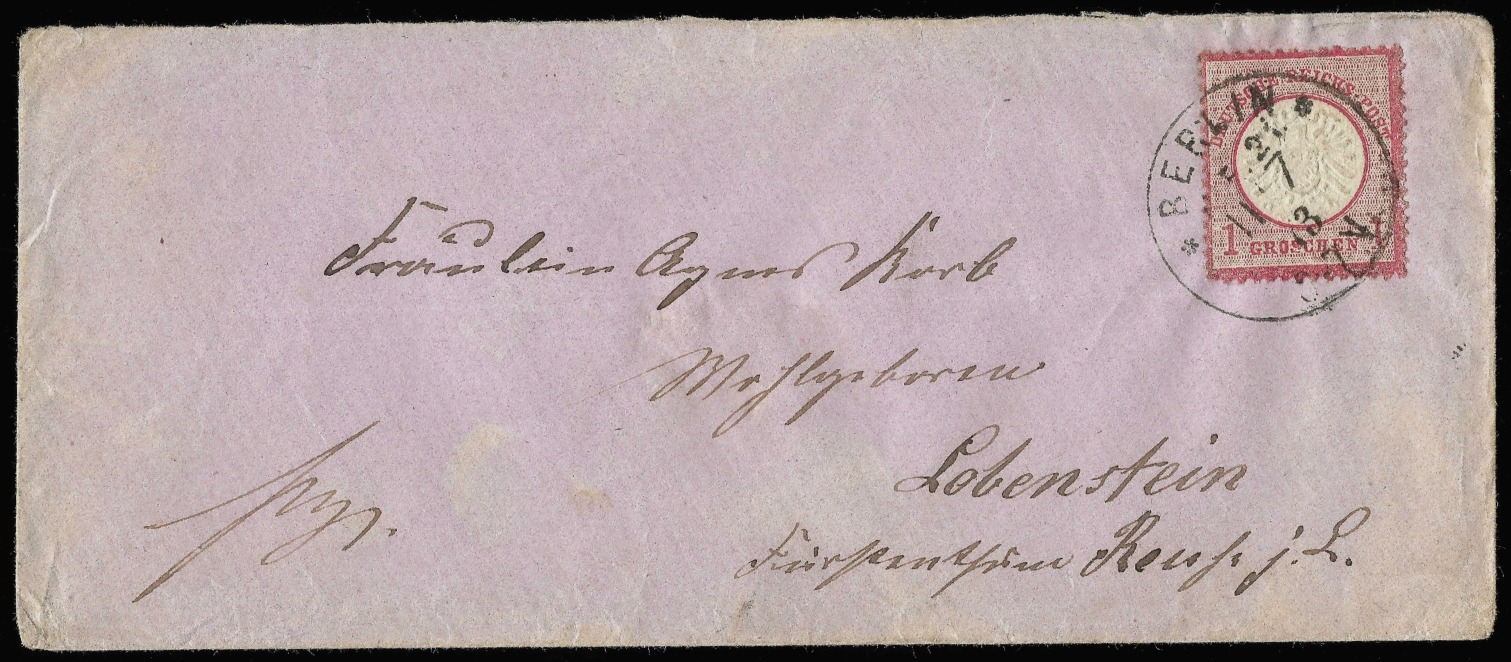 DEUTSCHE REICHS-POST
1 GROSCHEN 1
* BERLIN *
11 7
Fräulein Agnes Korb
Wohlgeboren
Lobenstein
Fürstenthum Reuß j. L.